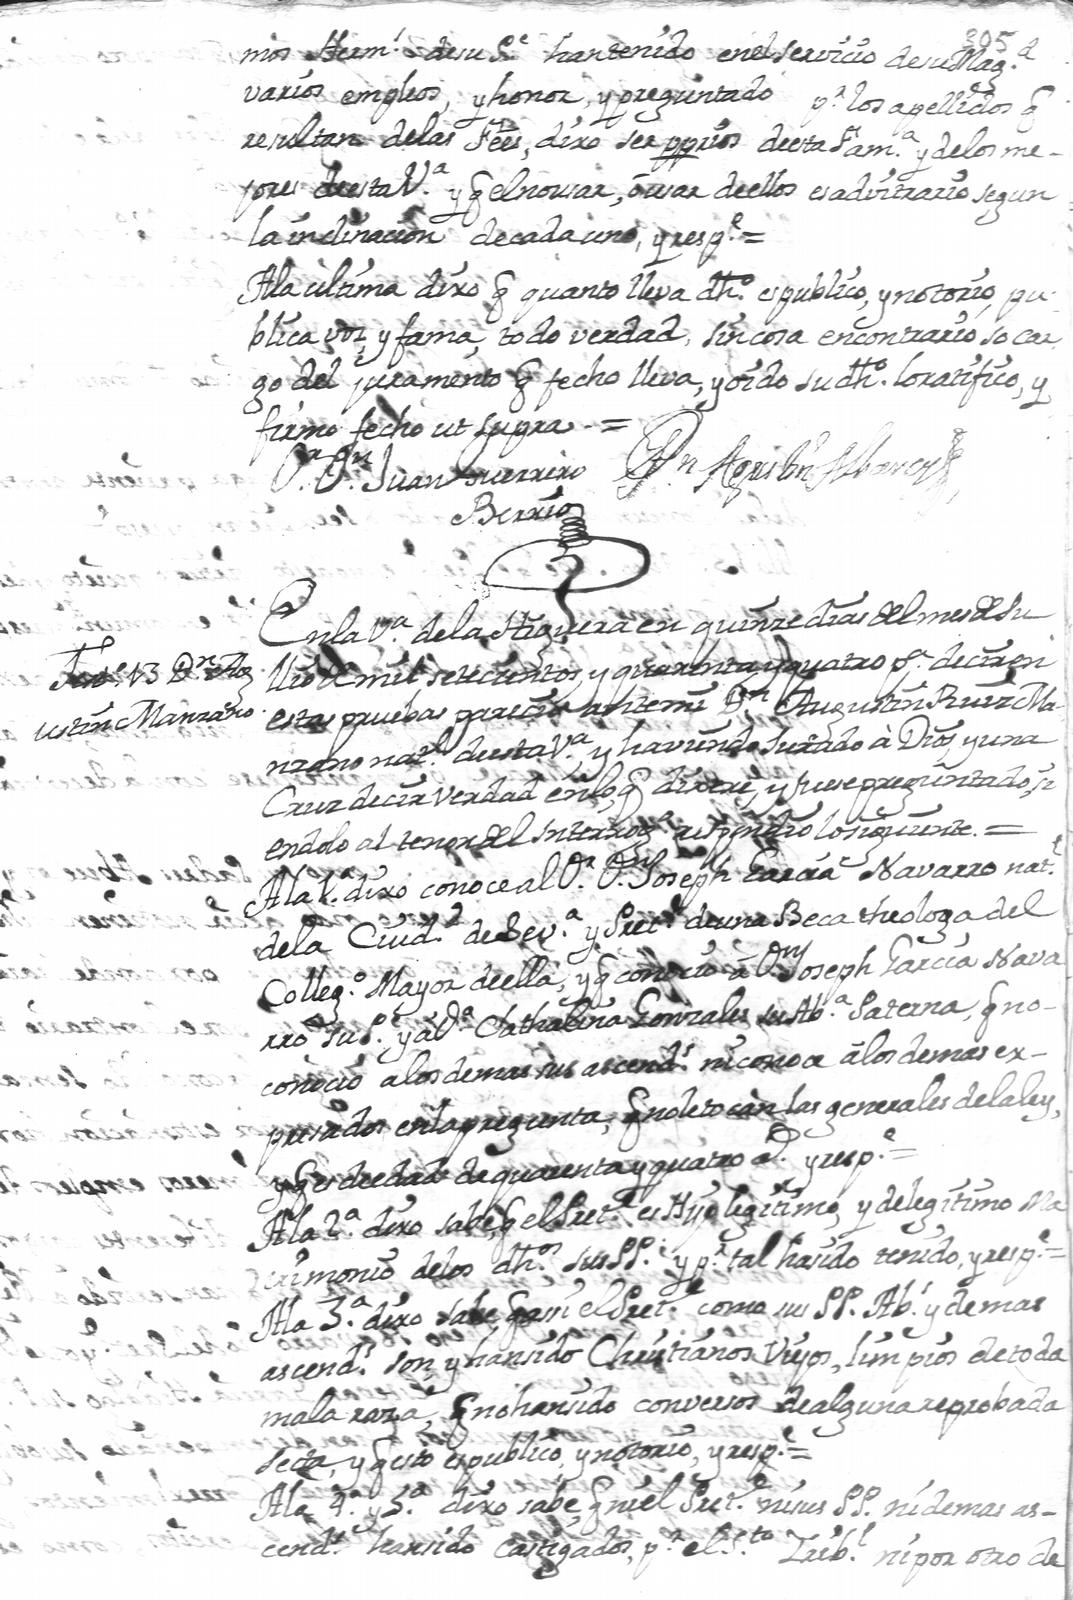 305
mos Herm.s de su P.e han tenido en el servicio de su Mag.d
varios empleos, y honor, y preguntado p.r los apellidos q
resultan de las Fees, dixo ser pprios de esta Fam.a y de los me-
jores de esta V.a y q el no usar, ó usar de ellos es advitrario segun
la inclinacion de cada uno, y resp.e =
Ala ultima dixo q quanto lleva dh.o es publico, y notorio, pu-
blica voz, y fama, todo verdad, sin cosa en contrario so car
go del juramento q fecho lleva, y oido su dh.o lo ratifico, y
firmo fecho ut supra =
D.r D.n Juan Guerrero D.n Agustin
Berrio
En la V.a de la Higuera en quinze dias del mes de Ju
Test.o 13 D.n Ag
lio de mil setecientos, y quarenta y quatro p.a decir en
ustin Manzano
estas pruebas parecio ante mi D.n Augustin Ruiz Ma-
nzano nat.l de esta V.a y haviendo Jurado à Dios, y una
Cruz decir verdad en lo q dixere, y fuese preguntado, si
endolo al tenor del Interrog.o respondio lo siguiente. =
Ala 1.a dixo conoce al D.r D.n Joseph Garcia Navarro nat.l
de la Ciud.d de Sev.a y Pret.e de una Beca theologa del
Colleg.o Mayor de ella, y q conocio à D.n Joseph Garcia Nava
rro su P.e y a D.a Cathalina Gonzales su Ab.a Paterna, q no
conocio a los demas sus ascend.s ni conoce à los demas ex-
presados en la pregunta, q no le tocan las generales de la ley,
y q es de edad de quarenta y quatro a.s y resp.e =
Ala 2.a dixo sabe, q el Pret.e es Hijo legitimo, y de legitimo Ma
trimonio de los dh.os sus PP. y p.r tal ha sido tenido, y resp.e =
Ala 3.a dixo sabe, q assi el Pret.e como sus PP. Ab.s y demas
ascend.s son, y han sido Christianos Viejos, limpios de toda
mala raza, q no han sido conversos de alguna reprobada
secta, y q esto es publico, y notorio, y resp.e =
Ala 4.a y 5.a dixo sabe, q ni el Pret.e ni sus PP. ni demas as-
cend.s han sido castigados, p.r el S.to Trib.l ni por otro de